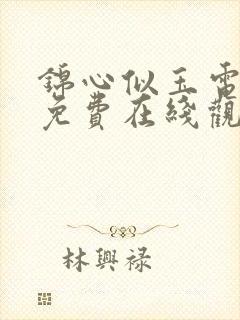 錦心似玉電
免費在綫觀
林興祿